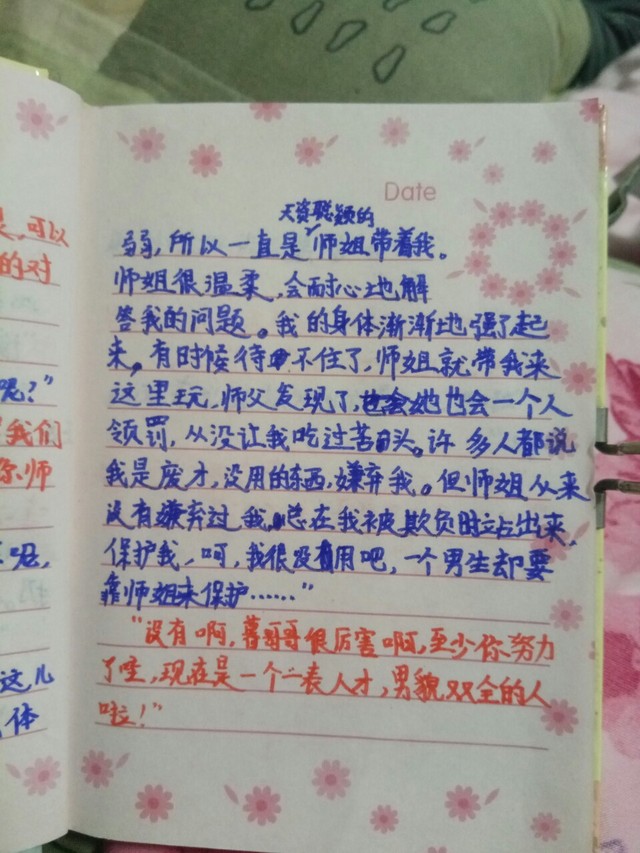 Date
天资聪颖的
弱，所以一直是师姐带着我。
师姐很温柔，会耐心地解
答我的问题。我的身体渐渐地强了起
来。有时候待不住了，师姐就带我来
这里玩，师父发现了，她也会一个人
领罚，从没让我吃过苦头。许多人都说
我是废才，没用的东西，嫌弃我。但师姐从来
没有嫌弃过我，总在我被欺负时站出来，
保护我，呵，我很没用吧，一个男生却要
靠师姐来保护……”
“没有啊，暮哥哥很厉害啊，至少你努力
了哇，现在是一个一表人才，男貌双全的人
啦！”
是，可以
的对
呢？”
我们
你师
呢，
这儿
体